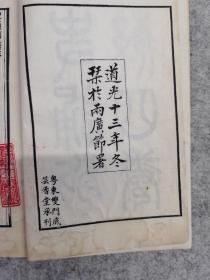 道光十三年冬
栞於兩廣節署
粵東雙門底
芸香堂承刊